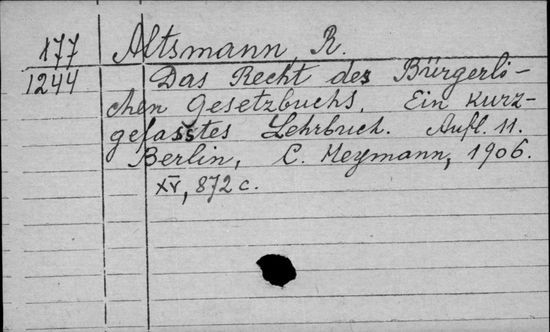 177 Altsmann, R.
1244 Das Recht des Bürgerli-
chen Gesetzbuchs. Ein kurz-
gefasstes Lehrbuch. Aufl. 11.
Berlin, C. Heymann, 1906.
XV, 872 c.